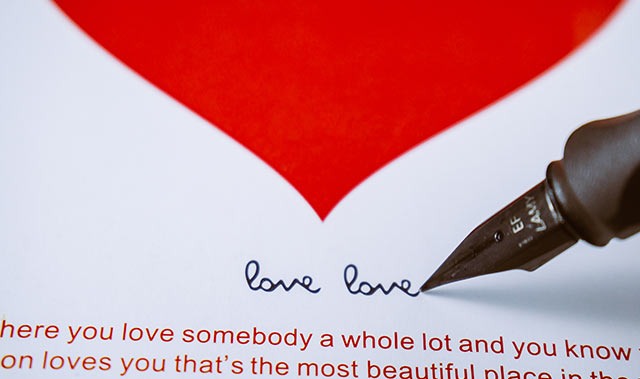 love love
EF LAMY
here you love somebody a whole lot and you know
on loves you that's the most beautiful place in the